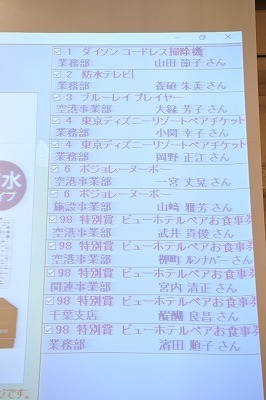 1 ダイソン コードレス掃除機
業務部 山田 節子 さん
2 防水テレビ
業務部 朱美 さん
3 ブルーレイ プレイヤー
空港事業部 大縁 芳子 さん
4 東京ディズニーリゾートペアチケット
業務部 小関 幸子 さん
4 東京ディズニーリゾートペアチケット
業務部 岡野 正江 さん
6 ボジョレーヌーボー
空港事業部 一宮 丈晃 さん
6 ボジョレーヌーボー
施設事業部 山﨑 雅芳 さん
98 特別賞 ビューホテルペアお食事券
空港事業部 武井 貴俊 さん
98 特別賞 ビューホテルペアお食事券
空港事業部 柳町 ルンナパー さん
98 特別賞 ビューホテルペアお食事券
関連事業部 宮内 清正 さん
98 特別賞 ビューホテルペアお食事券
千葉支店 醍醐 良昌 さん
98 特別賞 ビューホテルペアお食事券
業務部 濱田 順子 さん
水
イプ
ジです。